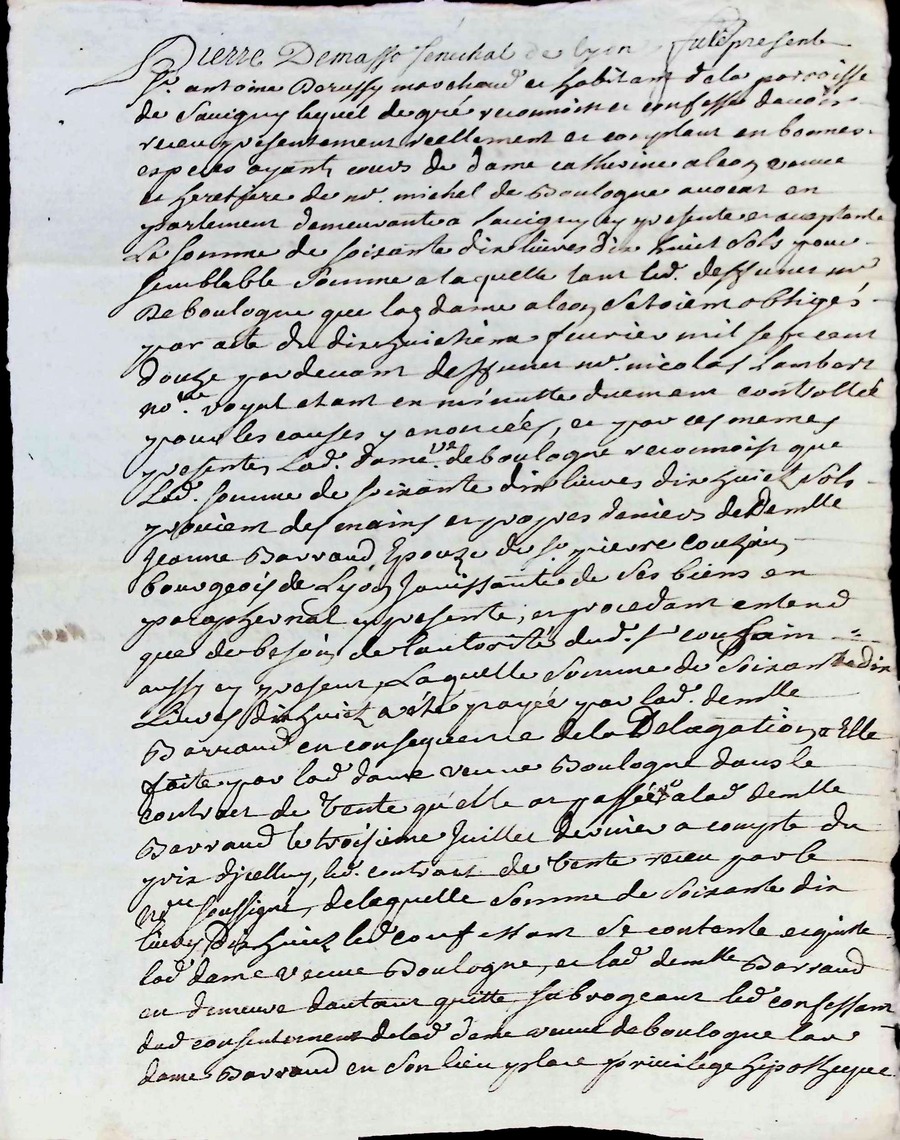 Pierre Demasso senechal de Lyon fut present
Sr. antoine Derussy marchand et habitant de la parroisse
de Savigny lequel de gré reconnoist et confesse davoir
receu presentement reellement et comptant en bonnes
especes ayant cours de dame catherine alcoq veuve
et heretiere de mr. michel de Boulogne avocat en
parlement demeurante a Savigny cy presente et acceptante
La somme de soixante dix livres dix huict sols pour
semblable somme a laquelle tant led. deffunct mr
De boulogne que lad dame alcoq setoient obligés
par acte du dix huictième fevrier mil sept cent
douze par devant deffunct mr. nicolas Lambert
nore. royal etant en minutte duement controllée
pour les causes y enoncées, et par ces memes
presentes Lad. dame ve. de boulogne reconnoist que
Lad. somme de soixante dix livres dix huict sols
provient des mains et propres deniers de Demlle
Jeanne Barraud Epouze de sr. pierre couzain
bourgeois de Lyon Jouissante de ses biens en
paraphernal cy presente, et procedant entend
que de besoin de lautorité dud. sr couzain
aussy cy present, Laquelle somme de soixante dix
Livres dix huict a été payée par lad. demlle
Barraud en consequence de la Delagation a Elle
faite par lad dame veuve Boulogne dans le
contract de vente qu'elle at passée a lad demlle
Barraud le troisieme Juillet dernier a compte du
prix d'jcelluy, led. contract de vente receu par le
nore soussigné, de laquelle somme de soixante dix
livres Dix huict led confessant se contente et quitte
lad dame veuve Boulogne, et lad demlle Barraud
en demeure dautant quitte subrogeant led confessant
du consentement de lad dame veuve de boulogne lad
dame Barraud en son lieu place privilege hipotheque